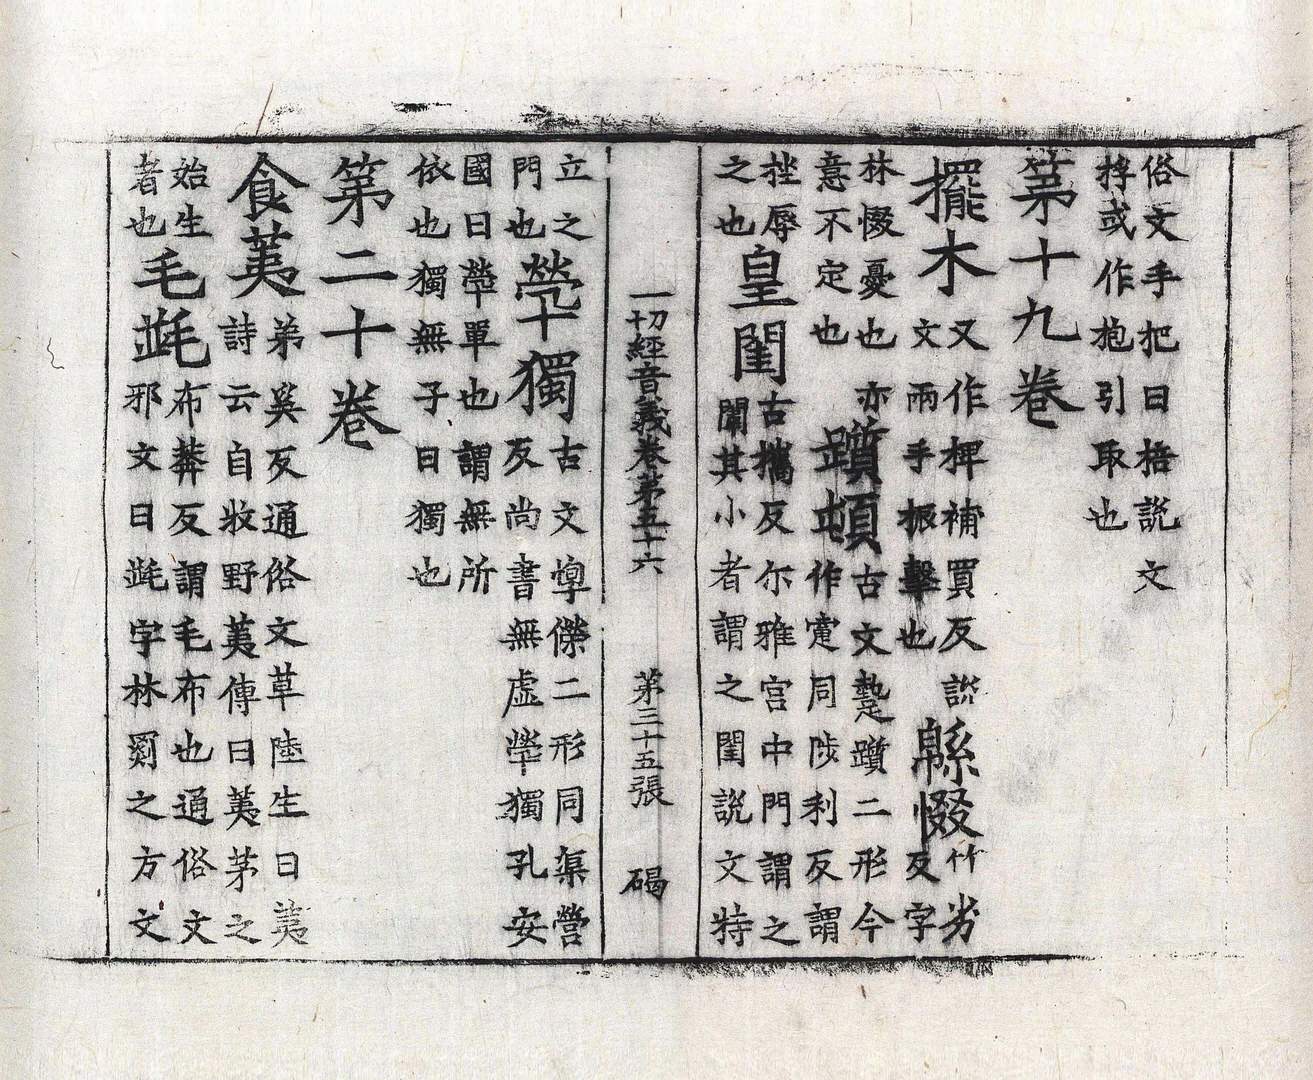 俗文手把曰掊說文
捊或作抱引取也
第十九卷
擺木
又作捭補買反說
文兩手振擊也
緜惙
竹劣
反字
林惙憂也亦
意不定也
躓頓
古文躓二形今
作疐同陟利反謂
挫辱
之也
皇閨
古攜反尒雅宮中門謂之
闈其小者謂之閨說文特
一切經音義卷第五十六　第三十五張　碣
立之
門也
煢獨
古文惸傑二形同渠營
反尚書無虐煢獨孔安
國曰煢單也謂無所
依也獨無子曰獨也
第二十卷
食荑
弟奚反通俗文草陸生曰荑
詩云自牧野荑傳曰荑茅之
始生
者也
毛㲲
布莽反謂毛布也通俗文
邪文曰㲲字林罽之方文